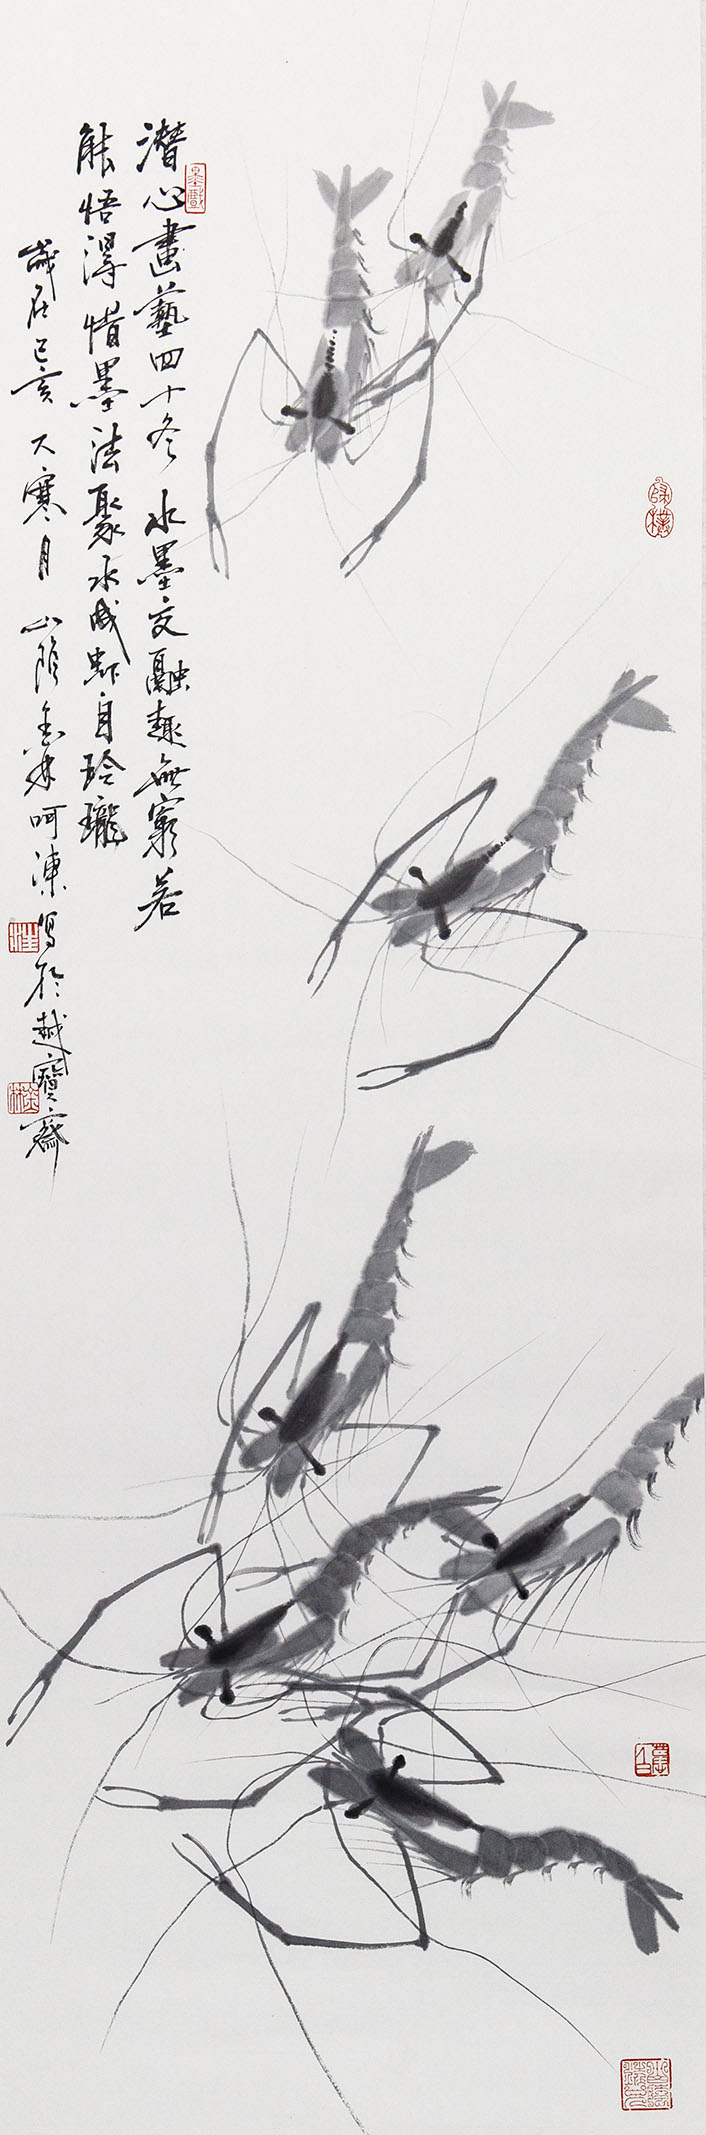 潛心畫藝四十冬水墨交融趣無窮若
能悟得惜墨法聚水成蝦自玲瓏
歲在己亥大寒月山陰金林呵凍寫於越寶齋